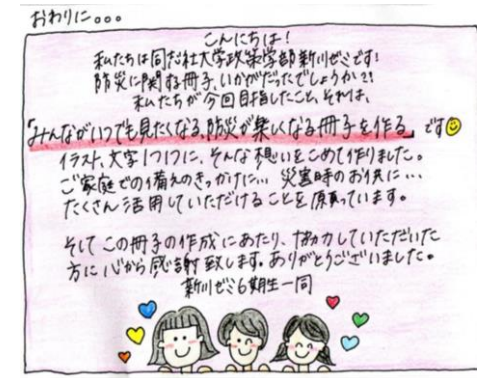 おわりに。。。
こんにちは!
私たちは同志社大学政策学部新川ゼミです!
防災に関する冊子、いかがだったでしょうか?!
私たちが今回目指したこと、それは、
「みんながいつでも見たくなる、防災が楽しくなる冊子を作る」です
イラスト、文字1つ1つに、そんな想いをこめて作りました。
ご家庭での備えのきっかけに... 災害時のお供に...
たくさん活用していただけることを願っています。
そして この冊子の作成にあたり、協力していただいた
方に心から感謝致します。ありがとうございました。
新川ゼミ6期生一同